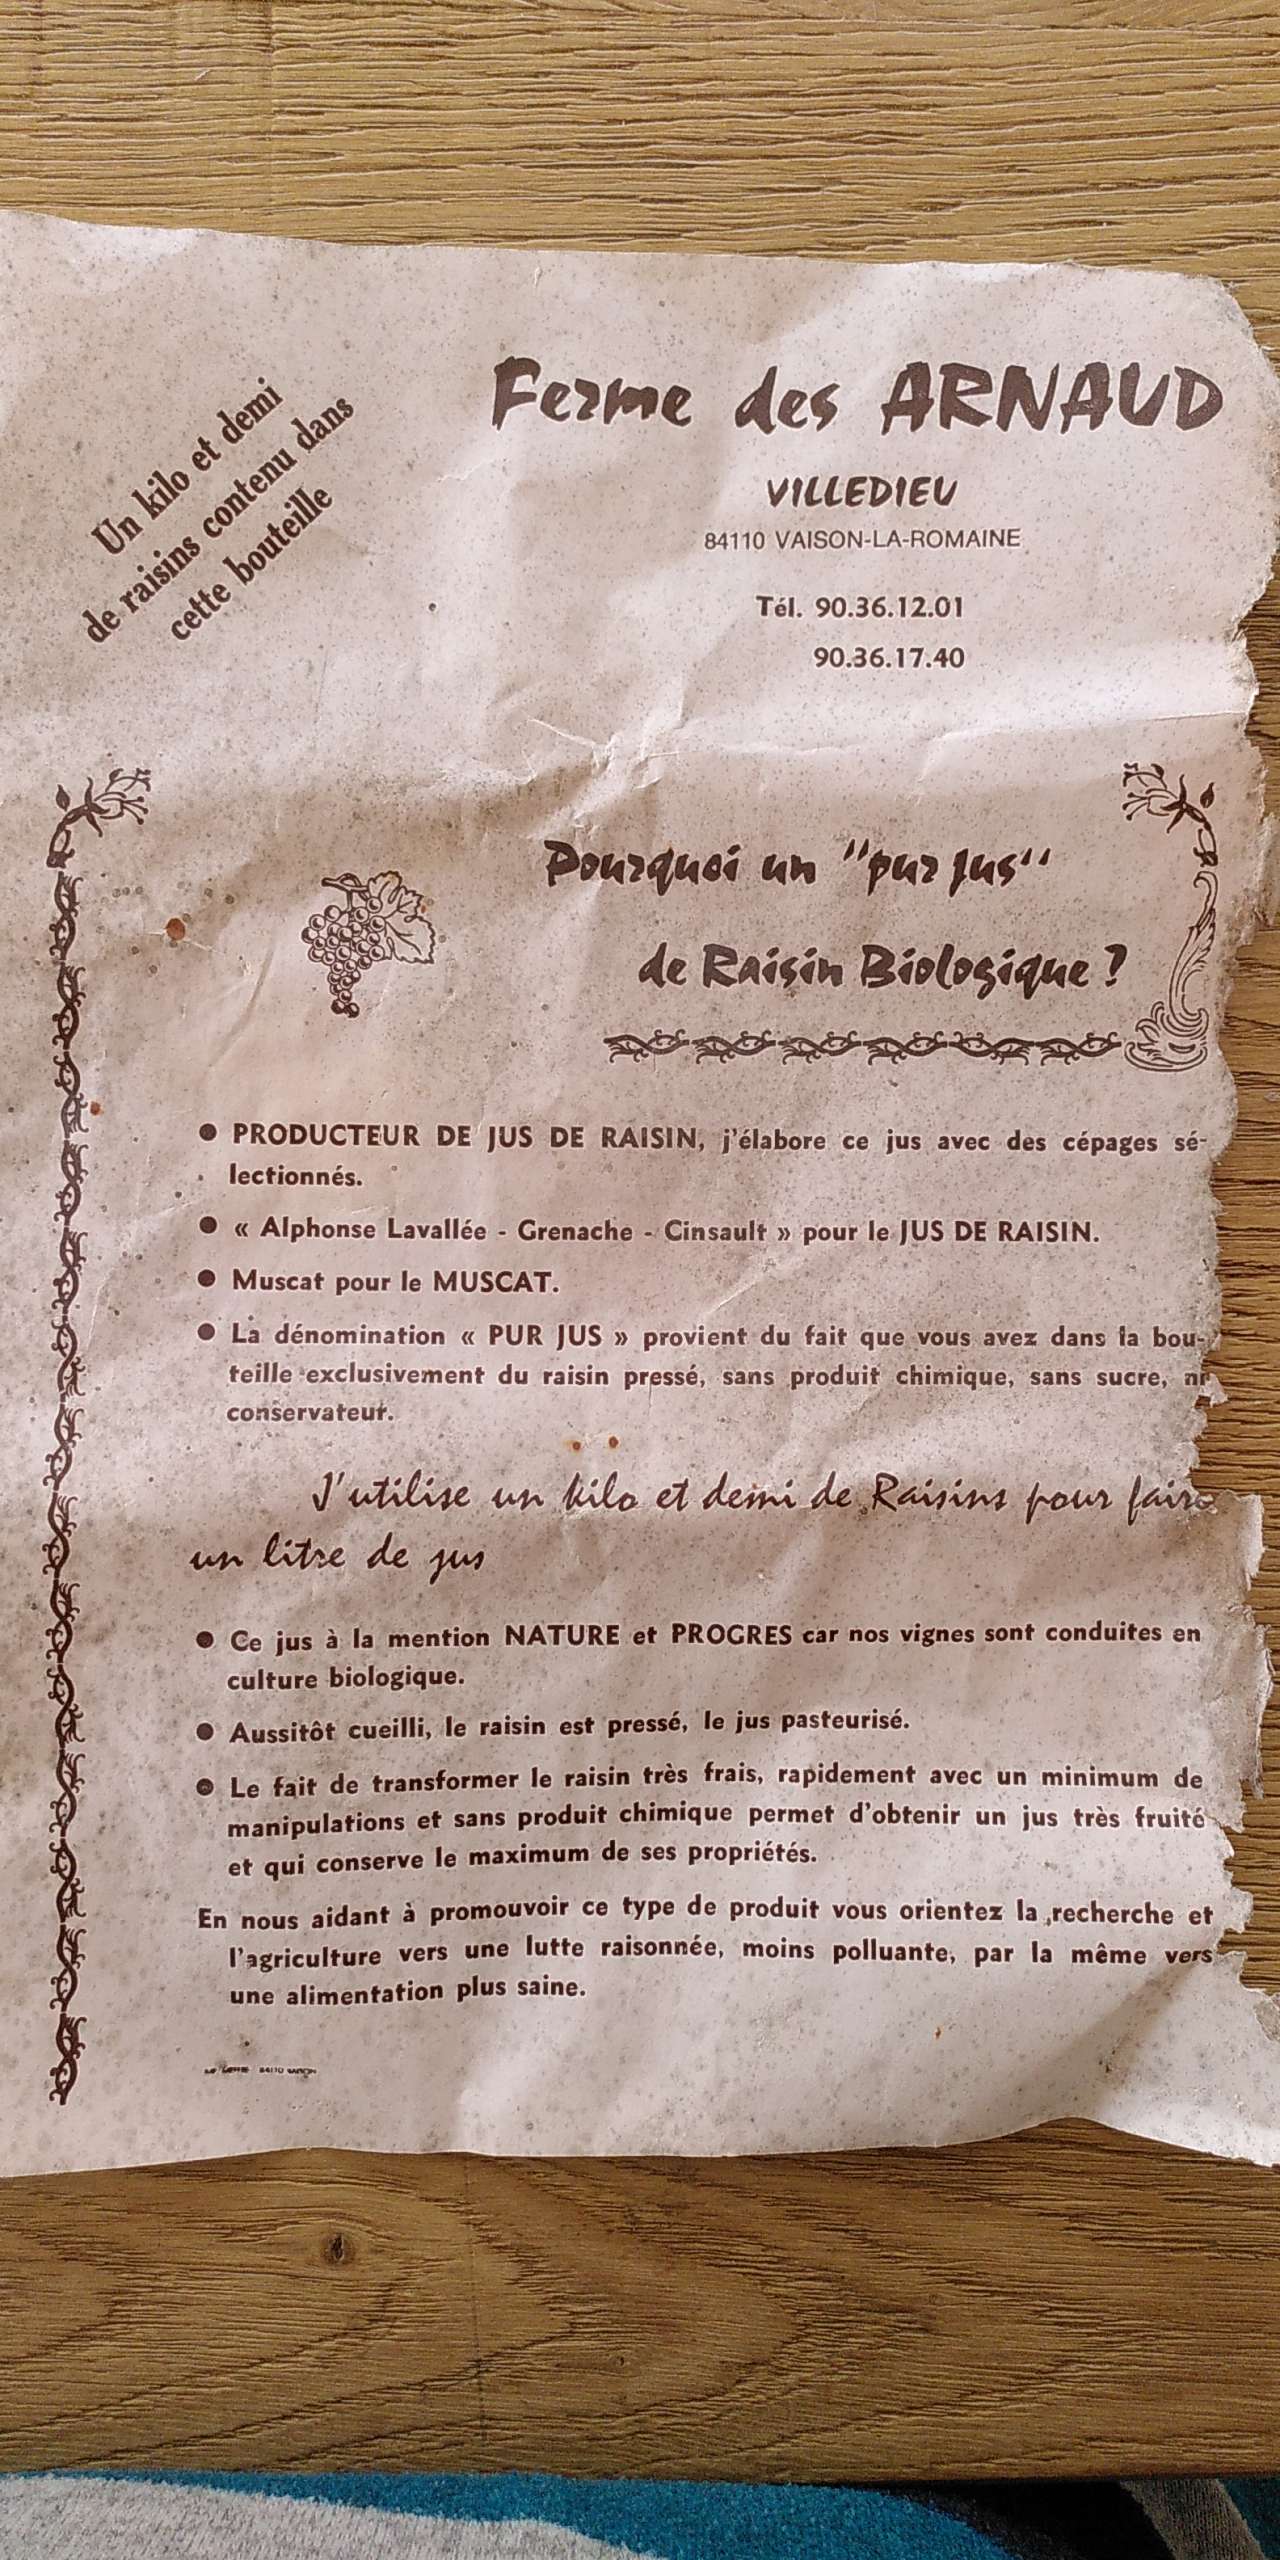 Un kilo et demi
de raisins contenu dans
cette bouteille
Ferme des ARNAUD
VILLEDIEU
84110 VAISON-LA-ROMAINE
Tél. 90.36.12.01
90.36.17.40
Pourquoi un "pur jus"
de Raisin Biologique ?
● PRODUCTEUR DE JUS DE RAISIN, j'élabore ce jus avec des cépages sé-
lectionnés.
● « Alphonse Lavallée - Grenache - Cinsault » pour le JUS DE RAISIN.
● Muscat pour le MUSCAT.
● La dénomination « PUR JUS » provient du fait que vous avez dans la bou-
teille exclusivement du raisin pressé, sans produit chimique, sans sucre, ni
conservateur.
J'utilise un kilo et demi de Raisins pour faire
un litre de jus
● Ce jus à la mention NATURE et PROGRES car nos vignes sont conduites en
culture biologique.
● Aussitôt cueilli, le raisin est pressé, le jus pasteurisé.
● Le fait de transformer le raisin très frais, rapidement avec un minimum de
manipulations et sans produit chimique permet d'obtenir un jus très fruité
et qui conserve le maximum de ses propriétés.
En nous aidant à promouvoir ce type de produit vous orientez la recherche et
l'agriculture vers une lutte raisonnée, moins polluante, par la même vers
une alimentation plus saine.
84110 VAISON